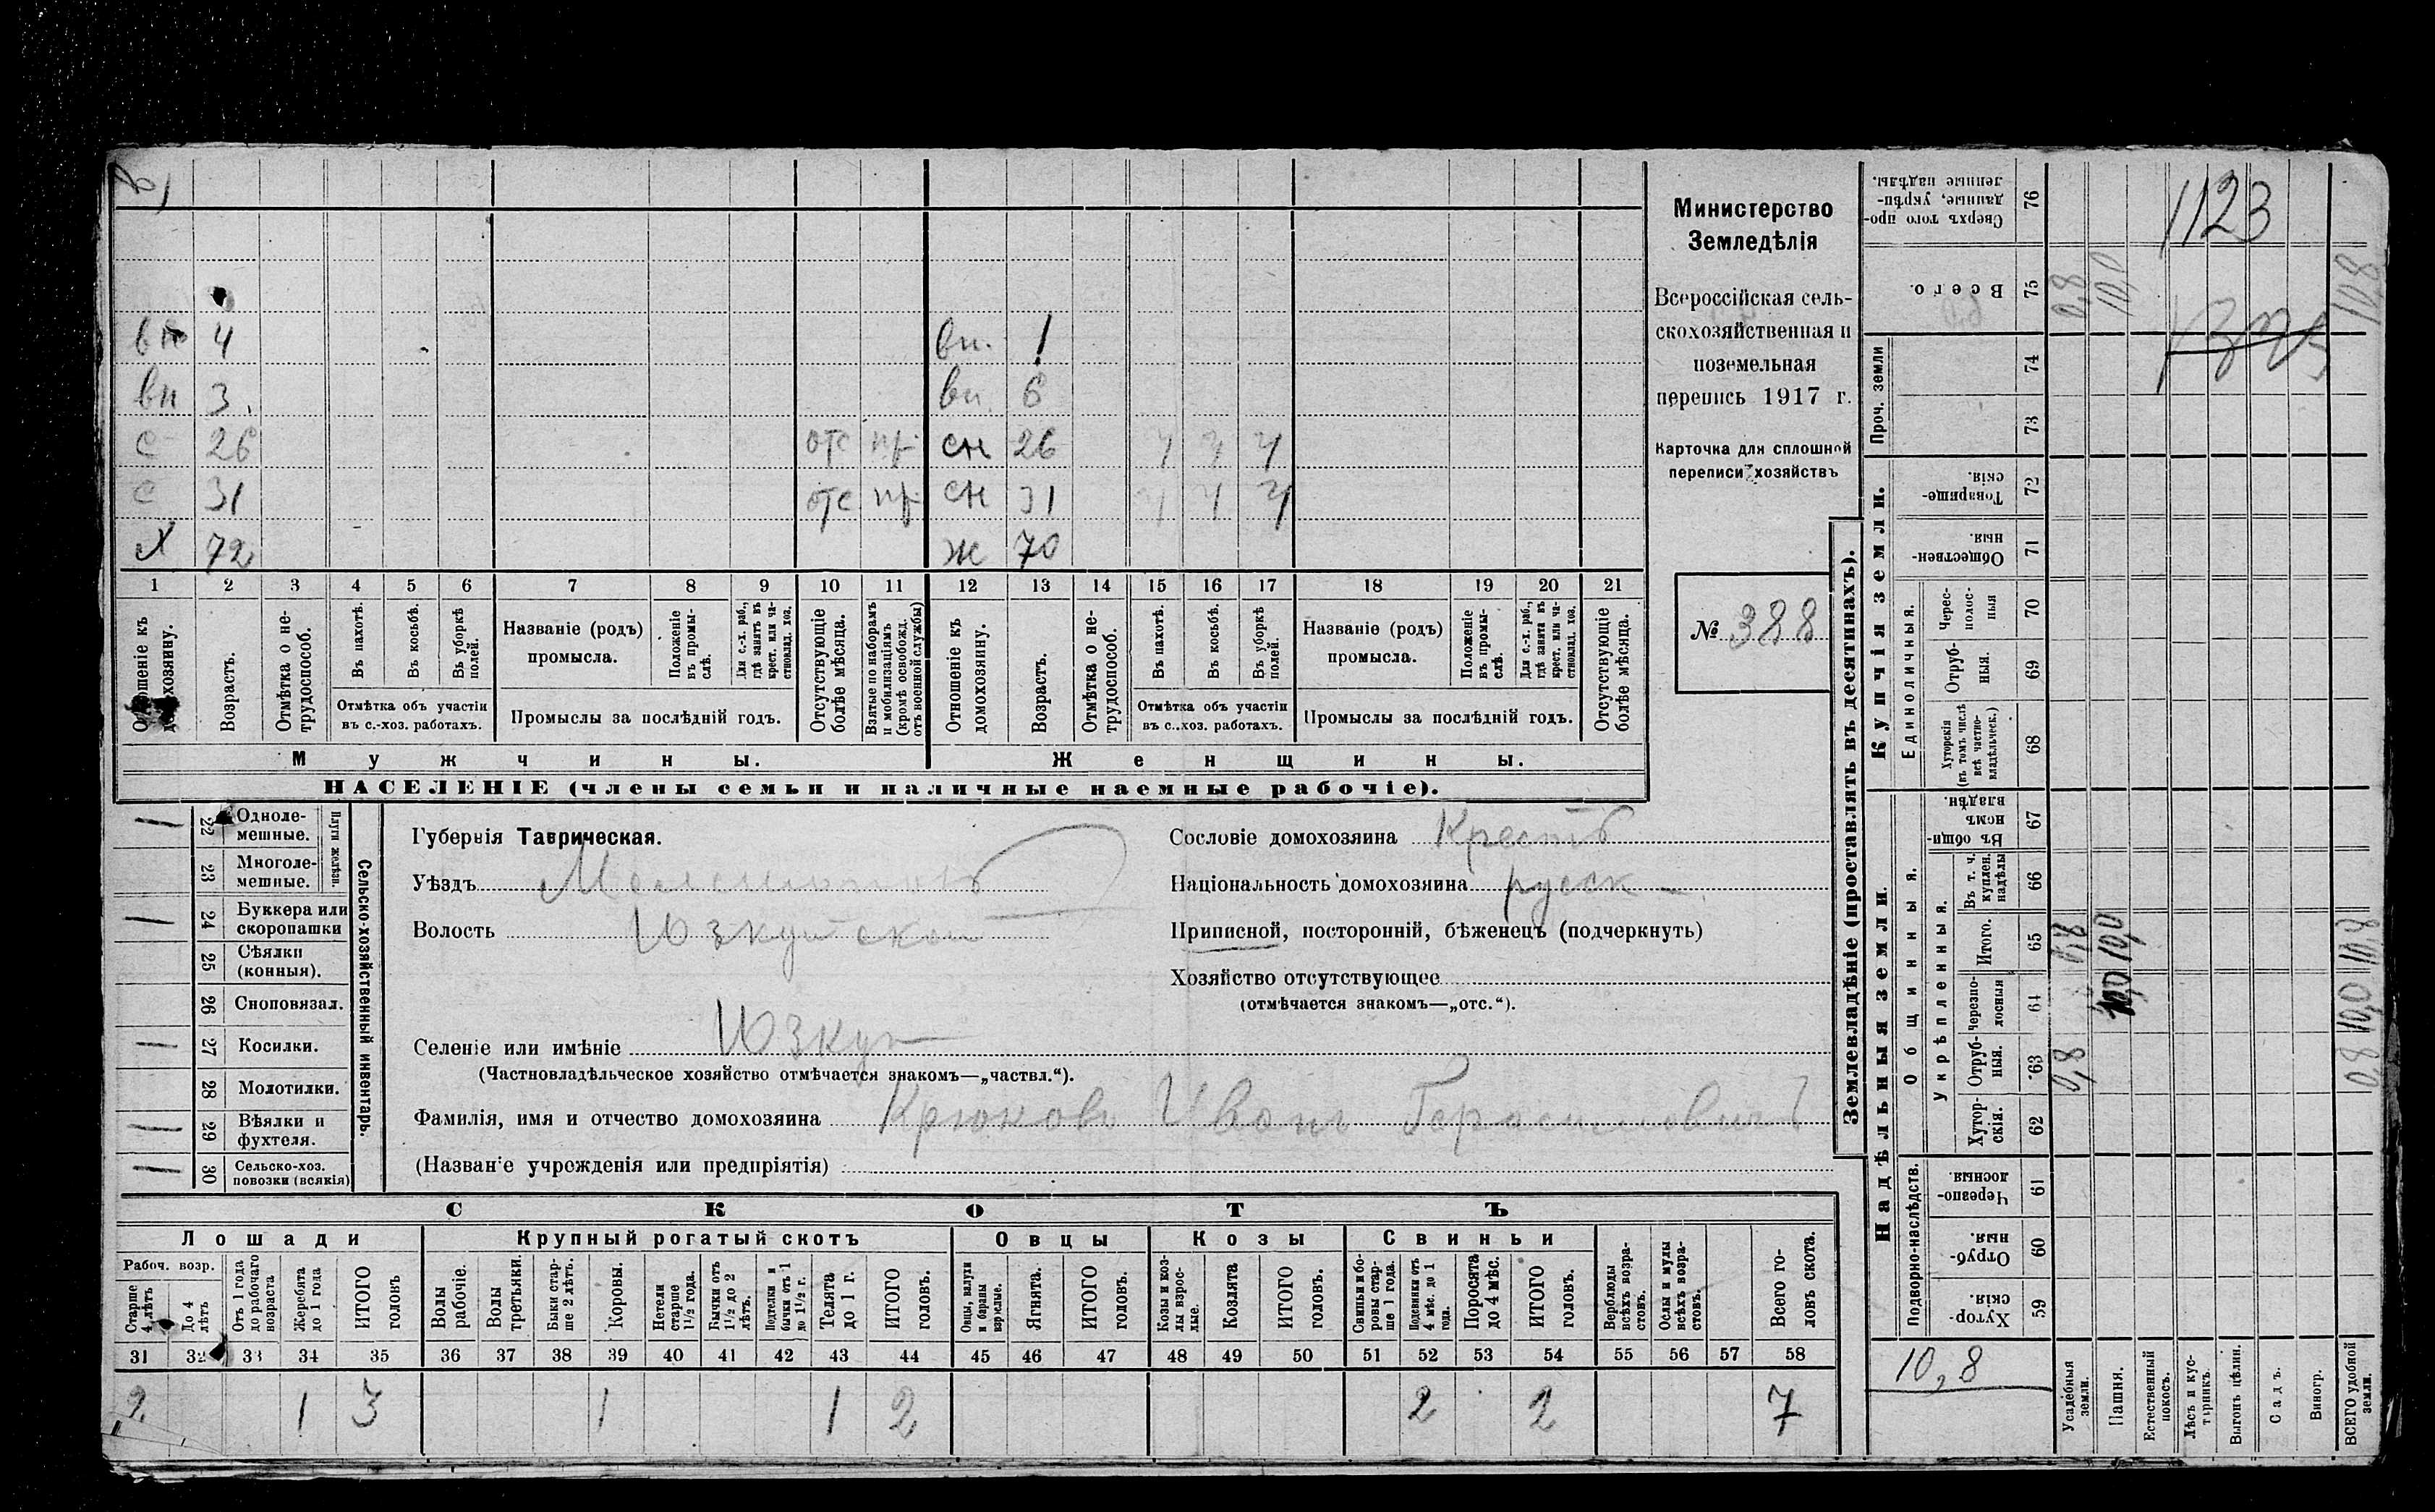 1123
вн 4 вн. 1
вн 3. вн. 6
с 26 отс пр сн 26 ч ч ч
с 31 отс пр сн 31 ч ч ч
х 72 ж 70
1 2 3 4 5 6 7 8 9 10 11 12 13 14 15 16 17 18 19 20 21
Отношеніе къ домохозяину.
Возрастъ.
Отмѣтка о нетрудоспособ.
Въ пахотѣ.
Въ косьбѣ.
Въ уборкѣ полей.
Отмѣтка объ участіи
въ с.-хоз. работахъ.
Названіе (родъ)
промысла.
Положеніе въ промыслѣ.
Для с.-х. раб., гдѣ занятъ въ крест. или частновлад. хоз.
Промыслы за послѣдній годъ.
Отсутствующіе болѣе мѣсяца.
Взятые по наборамъ и мобилизаціямъ (кромѣ освобожд. отъ военной службы)
Отношеніе къ домохозяину.
Возрастъ.
Отмѣтка о нетрудоспособ.
Въ пахотѣ.
Въ косьбѣ.
Въ уборкѣ полей.
Отмѣтка объ участіи
въ с.-хоз. работахъ.
Названіе (родъ)
промысла.
Положеніе въ промыслѣ.
Для с.-х. раб., гдѣ занята въ крест. или частновлад. хоз.
Промыслы за послѣдній годъ.
Отсутствующіе болѣе мѣсяца.
Мужчины. Женщины.
НАСЕЛЕНІЕ (члены семьи и наличные наемные рабочіе).
Министерство
Земледѣлія
Всероссійская сель-
скохозяйственная и
поземельная
перепись 1917 г.
Карточка для сплошной
переписи хозяйствъ
№ 388
22 Одноле-
мешные.
23 Многоле-
мешные.
Плуги желѣзн.
24 Буккера или
скоропашки
25 Сѣялки
(конныя).
26 Сноповязал.
27 Косилки.
28 Молотилки.
29 Вѣялки и
фухтеля.
30 Сельско-хоз.
повозки (всякія)
Сельско-хозяйственный инвентарь.
Губернія Таврическая.
Уѣздъ Мелитопольск
Волость Юзкуйской
Селеніе или имѣніе Юзкуи
(Частновладѣльческое хозяйство отмѣчается знакомъ—„частвл.“).
Фамилія, имя и отчество домохозяина Крюковъ Иванъ Герасимовичъ
(Назван'е учрежденія или предпріятія)
Сословіе домохозяина Крестъ
Національность домохозяина русск
Приписной, посторонній, бѣженецъ (подчеркнуть)
Хозяйство отсутствующее
(отмѣчается знакомъ—„отс.“).
СКОТЪ
Лошади Крупный рогатый скотъ Овцы Козы Свиньи
Рабоч. возр.
Старше 4 лѣтъ
До 4 лѣтъ
Отъ 1 года до рабочаго возраста
Жеребята до 1 года
ИТОГО головъ
Волы рабочіе.
Волы третьяки.
Быки старше 2 лѣтъ.
Коровы.
Нетели старше 1½ года.
Бычки отъ 1½ до 2 лѣтъ.
Подтелки и бычки отъ 1 до 1½ г.
Телята до 1 г.
ИТОГО головъ.
Овцы, валухи и бараны взрослые.
Ягнята.
ИТОГО головъ.
Козы и козлы взрослые.
Козлята
ИТОГО головъ.
Свиньи и боровы старше 1 года.
Подсвинки отъ 4 мѣс. до 1 года.
Поросята до 4 мѣс.
ИТОГО головъ.
Верблюды всѣхъ возрастовъ.
Ослы и мулы всѣхъ возрастовъ.
Всего головъ скота.
31 32 33 34 35 36 37 38 39 40 41 42 43 44 45 46 47 48 49 50 51 52 53 54 55 56 57 58
2 1 3 1 1 2 2 2 7
Землевладѣніе (проставлять въ десятинахъ).
Купчія земли.
Надѣльныя земли.
Проч. земли
Единоличныя.
Общинныя.
Укрѣпленныя.
Подворно-наслѣдств.
76 Сверхъ того проданные, укрѣпленные надѣлы.
75 Всего. 0,8 10,0 10,8
74
73
72 Товарищескія.
71 Общественныя
70 Чересполосныя
69 Отрубныя.
68 Хуторскія (въ томъ числѣ всѣ частновладѣльческ.)
67 Въ общинномъ владѣн.
66 Въ т. ч. куплен. надѣлы
65 Итого. 0,8 10,0 10,8
64 Черезполосныя 10,0 10,0
63. Отрубныя. 0,8 0,8
62 Хуторскія.
61 Черезполосныя
60 Отрубныя.
59 Хуторскія.
10,8
Усадебныя земли.
Пашня.
Естественный покосъ.
Лѣсъ и кустарникъ.
Выгонъ цѣлин.
Садъ.
Виногр.
ВСЕГО удобной земли.